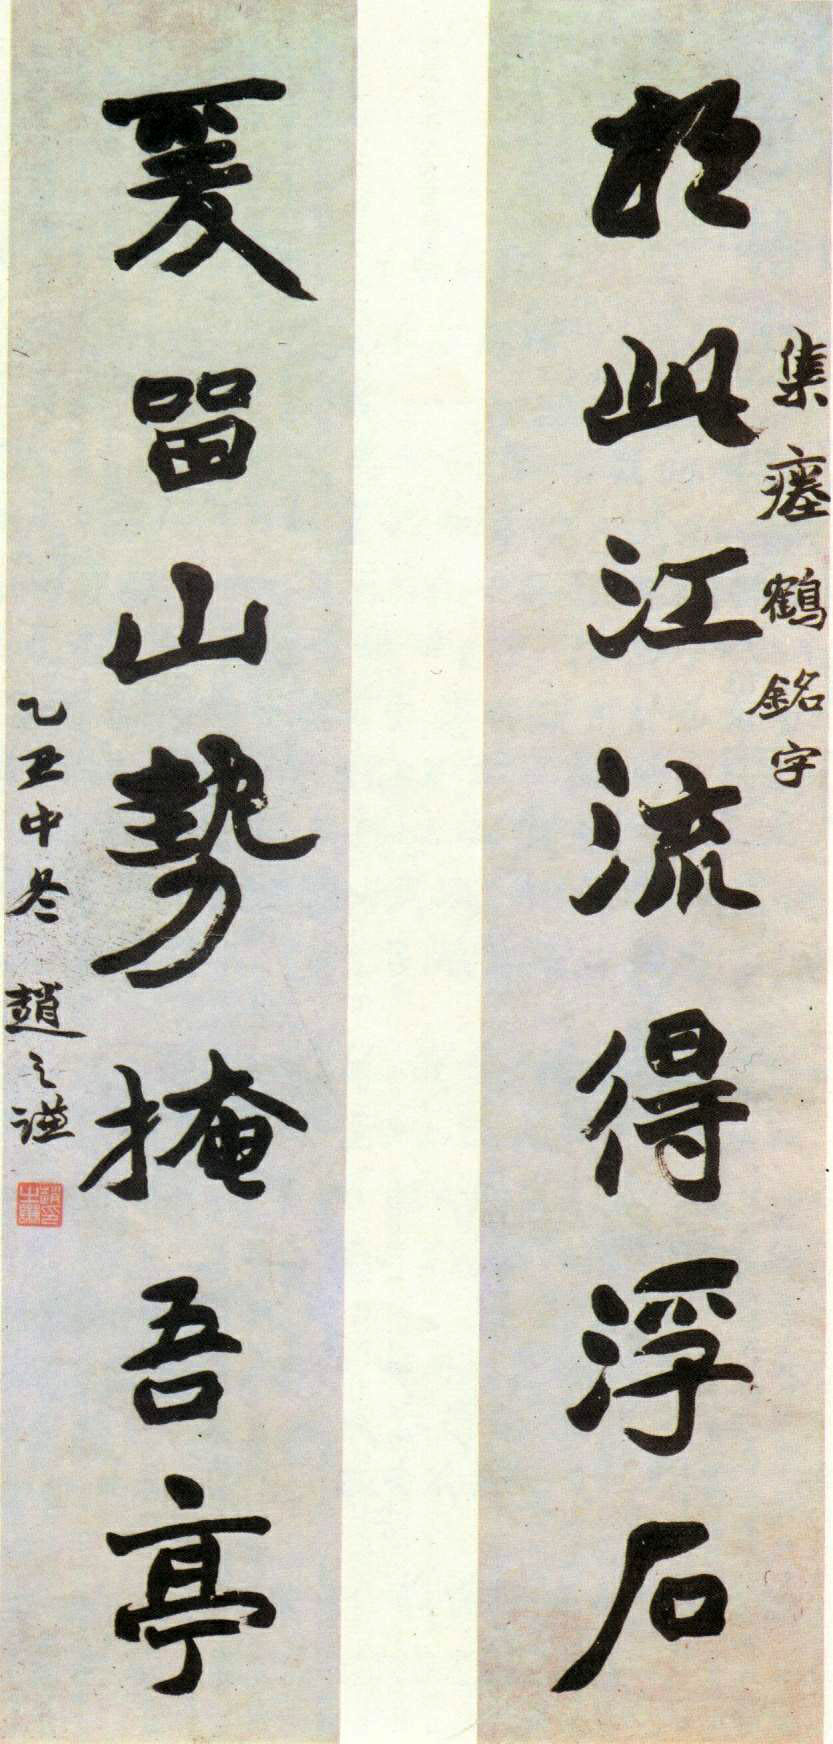 集瘞鶴銘字
相此江流得浮石
爰留山勢掩吾亭
乙丑中冬 趙之謙